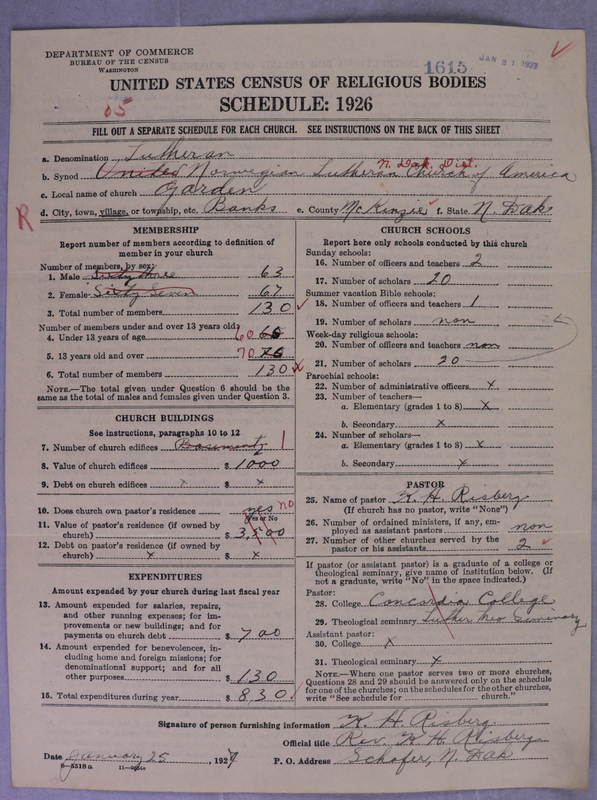 DEPARTMENT OF COMMERCE
BUREAU OF THE CENSUS
WASHINGTON
1615
JAN 31 1927
UNITED STATES CENSUS OF RELIGIOUS BODIES
SCHEDULE: 1926
05
FILL OUT A SEPARATE SCHEDULE FOR EACH CHURCH. SEE INSTRUCTIONS ON THE BACK OF THIS SHEET
a. Denomination Lutheran
N. Dak. Dist.
b. Synod United Norwegian Lutheran Church of America
c. Local name of church Garden
R
d. City, town, village, or township, etc. Banks e. County McKenzie f. State N. Dak
MEMBERSHIP
Report number of members according to definition of member in your church
Number of members, by sex:
1. Male Sixty three 63
2. Female Sixty Seven 67
3. Total number of members 130
Number of members under and over 13 years old:
4. Under 13 years of age 60
5. 13 years old and over 70 76
6. Total number of members 130
NOTE.—The total given under Question 6 should be the same as the total of males and females given under Question 3.
CHURCH BUILDINGS
See instructions, paragraphs 10 to 12
7. Number of church edifices Basement 1
8. Value of church edifices $ 1000
9. Debt on church edifices x $ x
10. Does church own pastor's residence yes no
Yes or No
11. Value of pastor's residence (if owned by church) $ 3,500
12. Debt on pastor's residence (if owned by church) x $ x
EXPENDITURES
Amount expended by your church during last fiscal year
13. Amount expended for salaries, repairs, and other running expenses; for improvements or new buildings; and for payments on church debt $ 700
14. Amount expended for benevolences, including home and foreign missions; for denominational support; and for all other purposes $ 130
15. Total expenditures during year $ 830
CHURCH SCHOOLS
Report here only schools conducted by this church
Sunday schools:
16. Number of officers and teachers 2
17. Number of scholars 20
Summer vacation Bible schools:
18. Number of officers and teachers 1
19. Number of scholars non
Week-day religious schools:
20. Number of officers and teachers non
21. Number of scholars 20
Parochial schools:
22. Number of administrative officers x
23. Number of teachers—
a. Elementary (grades 1 to 8) x
b. Secondary x
24. Number of scholars—
a. Elementary (grades 1 to 8) x
b. Secondary x
PASTOR
25. Name of pastor K. H. Risberg
(If church has no pastor, write "None")
26. Number of ordained ministers, if any, employed as assistant pastors non
27. Number of other churches served by the pastor or his assistants 2
If pastor (or assistant pastor) is a graduate of a college or theological seminary, give name of institution below. (If not a graduate, write "No" in the space indicated.)
Pastor:
28. College Concordia College
29. Theological seminary Luther Theo Seminary
Assistant pastor:
30. College x
31. Theological seminary x
NOTE.—Where one pastor serves two or more churches, Questions 28 and 29 should be answered only on the schedule for one of the churches; on the schedules for the other churches, write "See schedule for church."
Signature of person furnishing information K. H. Risberg
Official title Rev. K. H. Risberg
Date January 25, 1927 P. O. Address Schafer, N. Dak
8—5518 a